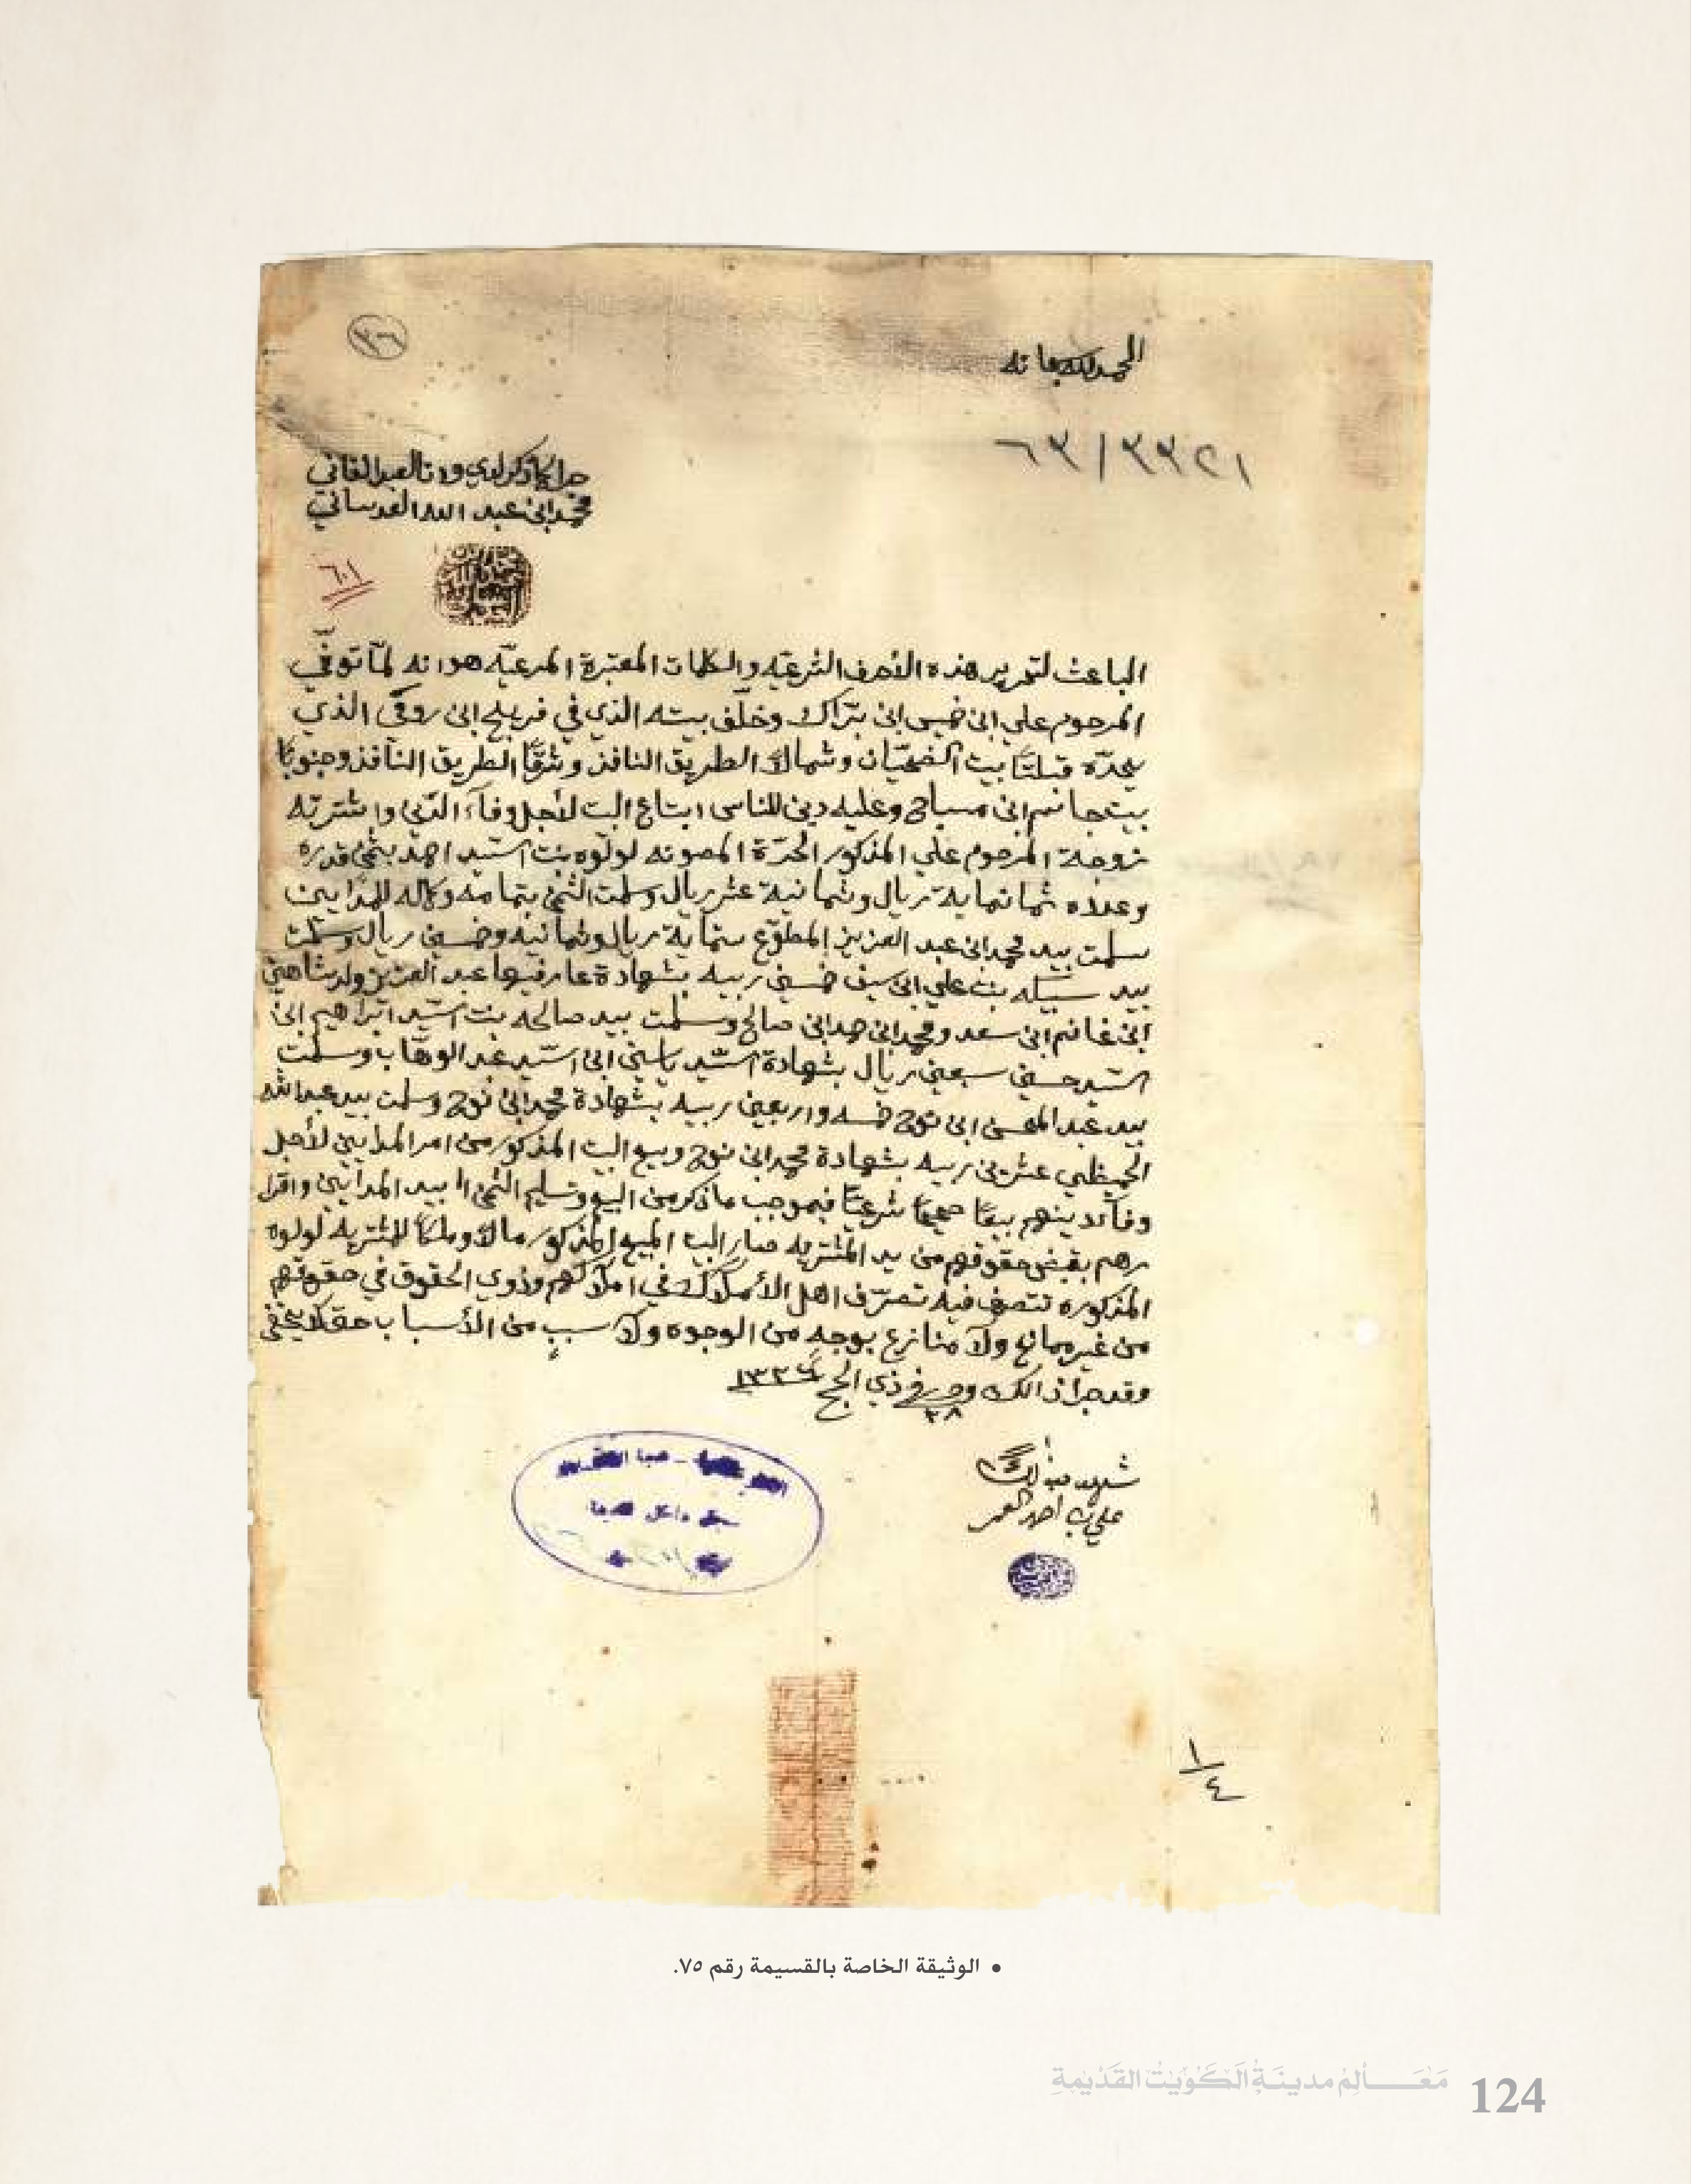 الحمد لله سبحانه
٣٣٢١/٦٣
جرا كما ذكر لدي وانا العبد الفاني
محمد ابن عبد الله العدساني
٦٠١
الباعث لتحرير هذه الأحرف الشرعيّه والكلمات المعتبرة المرعيّه هو انه لمّا توفّي
المرحوم علي ابن خميس ابن برّاك وخلّف بيته الذي في فريج ابن روقي الذي
يحدّه قبلتًا بيت الضحيّان وشمالاً الطريق النافذ وشرقًا الطريق النافذ وجنوبًا
بيت جاسم ابن مسباح وعليه دين للناس ابتاع البيت لأجل وفآء الدّين واشترته
زوجة المرحوم علي المذكور الحرّة المصونه لولوه بنت السّيد احمد بثمن قدره
وعداده ثمانماية ريال وثمانية عشر ريال وسلمت الثمن بتمامه وكماله للمدايين
سلمت بيد محمد ابن عبد العزيز المطوّع ستماية ريال وثمانيه وخمسين ريال وسلمت
بيد سبيكه بنت علي ابن سيف خمسين ربيه بشهادة عارفيها عبد العزيز ولد شاهين
ابن غانم ابن سعد ومحمد ابن حمد ابن صالح وسلمت بيد صالحه بنت السّيد ابراهيم ابن
السّيد حسين سبعين ريال بشهادة السّيد ياسين ابن السّيد عبد الوهّاب وسلمت
بيد عبد المحسن ابن نوح خمسه واربعين ربيه بشهادة محمد ابن نوح وسلمت بيد عبد الله
الحميظي عشرين ربيه بشهادة محمد ابن نوح وبيع البيت المذكور من امر المدايين لأجل
وفآء دينهم بيعًا صحيحًا شرعيًّا فبموجب ما ذكر من البيع وتسليم الثمن ابيد المدايين واقرا
رهم بقبض حقوقهم من يد المشتريه صار البيت المبيع المذكور مالاً وملكًا للمشتريه لولوه
المذكوره تتصرف فيه تصرّف اهل الأملاك في املاكهم وذوي الحقوق في حقوقهم
من غير ممانع ولا منازع بوجهٍ من الوجوه ولا سببٍ من الأسباب حتى لا يخفى
وقد جرا ذالك وحرر في ٢٨ ذي الحج
شهد بذالك
علي بن احمد العمر
١/٤
• الوثيقة الخاصة بالقسيمة رقم ٧٥.
مَعَالِمُ مدينَةِ الكُوَيْتِ القَدِيْمَةِ 124